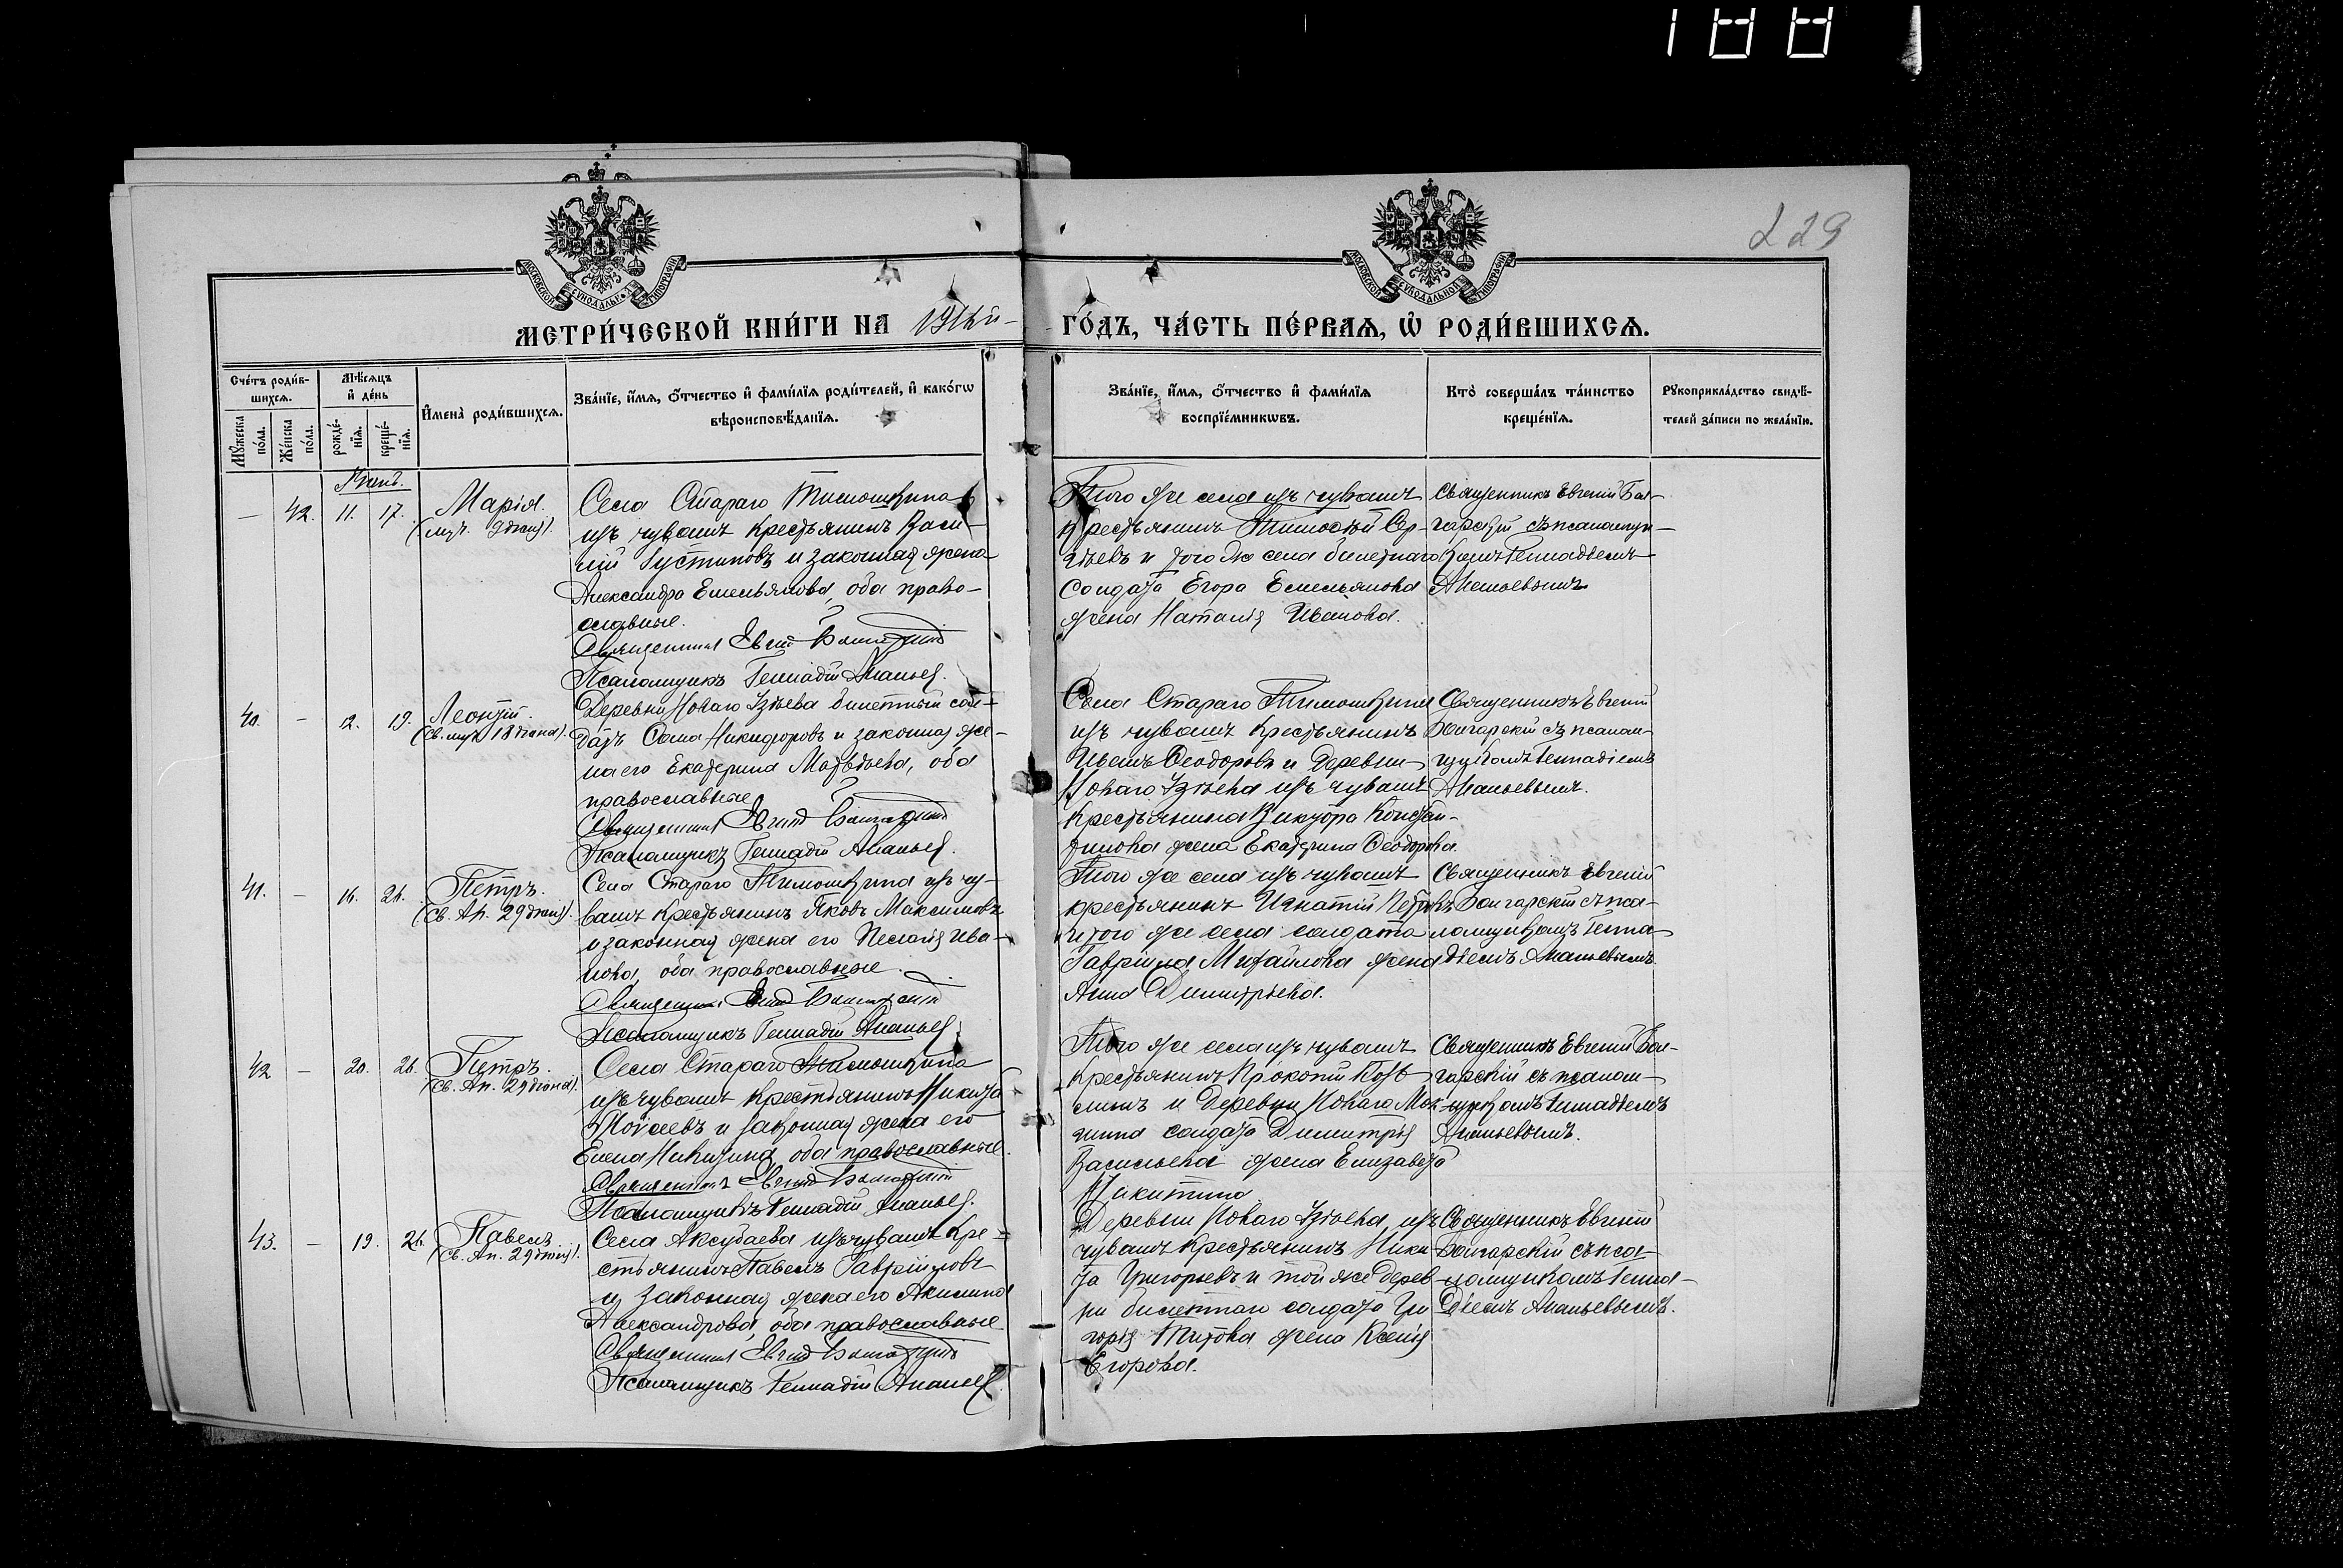 229
МОСКОВСКОЙ СѴНОДАЛЬНОЙ ТИПОГРАФІИ
МОСКОВСКОЙ СѴНОДАЛЬНОЙ ТИПОГРАФІИ
МЕТРИ́ЧЕСКОЙ КНИ́ГИ НА ГО́ДЪ, ЧА́СТЬ ПЕ́РВАЯ, Ѡ҆ РОДИ́ВШИХСЯ.
Сче́тъ роди́в-
шихся.
Мꙋ́жеска
по́ла.
Же́нска
по́ла.
Мѣ́сяцъ
и҆ де́нь
рожде́-
нїя.
креще́-
нїя.
И҆мена̀ роди́вшихся.
Зва́нїе, и҆́мя, ѻ҆́тчество и҆ фами́лїя роди́телей, и҆ како́гѡ
вѣроисповѣ́данїя.
Зва́нїе, и҆́мя, ѻ҆́тчество и҆ фами́лїя
воспрїе́мникѡвъ.
Кто̀ соверша́лъ та́инство
креще́нїя.
Рꙋкоприкла́дство свидѣ́-
телей за́писи по жела́нїю.
— 42. 11. 17.
Марія.
Села Стараго Тимошкина
изъ чувашъ крестьянинъ Васи-
лій Іустиновъ и законная жена
Александра Емельянова, оба право-
славные.
Священникъ Евгеній Болгарскій
Псаломщикъ Геннадій Ананьевъ.
Того же села изъ чувашъ
крестьянинъ Тимофей Сер-
гѣевъ и того же села билетнаго
солдата Егора Емельянова
жена Наталія Иванова.
Священникъ Евгеній Бол-
гарскій съ псаломщи-
комъ Геннадіемъ
Ананьевымъ
40. — 12. 19.
Леонтій.
(Св. муч. 18 іюня).
Деревни Новаго Узѣева билетный сол-
датъ Никифоровъ и законная же-
на его Екатерина Матвѣева, оба
православные
Священникъ Евгеній Болгарскій
Псаломщикъ Геннадій Ананьевъ.
Села Стараго Тимошкина
изъ чувашъ крестьянинъ
Иванъ Ѳеодоровъ и деревни
Новаго Узѣева изъ чувашъ
крестьянина Виктора Констан-
тинова жена Екатерина Ѳеодорова.
Священникъ Евгеній
Болгарскій съ псалом-
щикомъ Геннадіемъ
Ананьевымъ.
41. — 16. 26.
Петръ.
(Св. Ап. 29 іюня).
Села Стараго Тимошкина изъ чу-
вашъ крестьянинъ Яковъ Максимовъ
и законная жена его Пелагія Ива-
нова, оба православные.
Священникъ Евгеній Болгарскій
Псаломщикъ Геннадій Ананьевъ.
Того же села изъ чувашъ
крестьянинъ Игнатій Петровъ
и того же села солдата
Гавріила Михайлова жена
Анна Димитріева.
Священникъ Евгеній
Болгарскій съ пса-
ломщикомъ Генна-
діемъ Ананьевымъ.
42 — 20. 26.
Петръ.
(Св. Ап. 29 іюня).
Села Стараго Тимошкина
изъ чувашъ крестьянинъ Никита
Моѵсеевъ и законная жена его
Елена Никитина, оба православные.
Священникъ Евгеній Болгарскій
Псаломщикъ Геннадій Ананьевъ.
Того же села изъ чувашъ
крестьянинъ Прокопій Козь-
минъ и деревни Новаго Мок-
шина солдата Димитрія
Васильева жена Елизавета
Никитина
Священникъ Евгеній Бол-
гарскій съ псалом-
щикомъ Геннадіемъ
Ананьевымъ.
43. — 19. 26.
Павелъ
(Св. Ап. 29 іюня).
Села Аксубаева изъ чувашъ кре-
стьянинъ Павелъ Гавріиловъ
и законная жена его Акилина
Александрова, оба православные
Священникъ Евгеній Болгарскій
Псаломщикъ Геннадій Ананьевъ.
Деревни Новаго Узѣева изъ
чувашъ крестьянинъ Ники-
та Григорьевъ и той же дерев-
ни билетнаго солдата Гри-
горія Титова жена Ксенія
Егорова.
Священникъ Евгеній
Болгарскій съ пса-
ломщикомъ Генна-
діемъ Ананьевымъ.